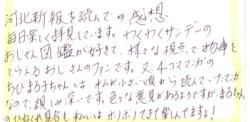 河北新報を読んでの感想
毎日楽しく拝見しています。わくわくサンデーの
おじさん図鑑が好きで、様々な視点で物事を
とらえるおじさんのファンです。又、4コママンガの
ちびまる子ちゃんは、私が小さい頃から読んでいたマンガ
なので、親しみ深いです。色々な意見があるようですがまる子ちゃん
のひねくれ具合も私にはホノボノできて楽しんでますよ!